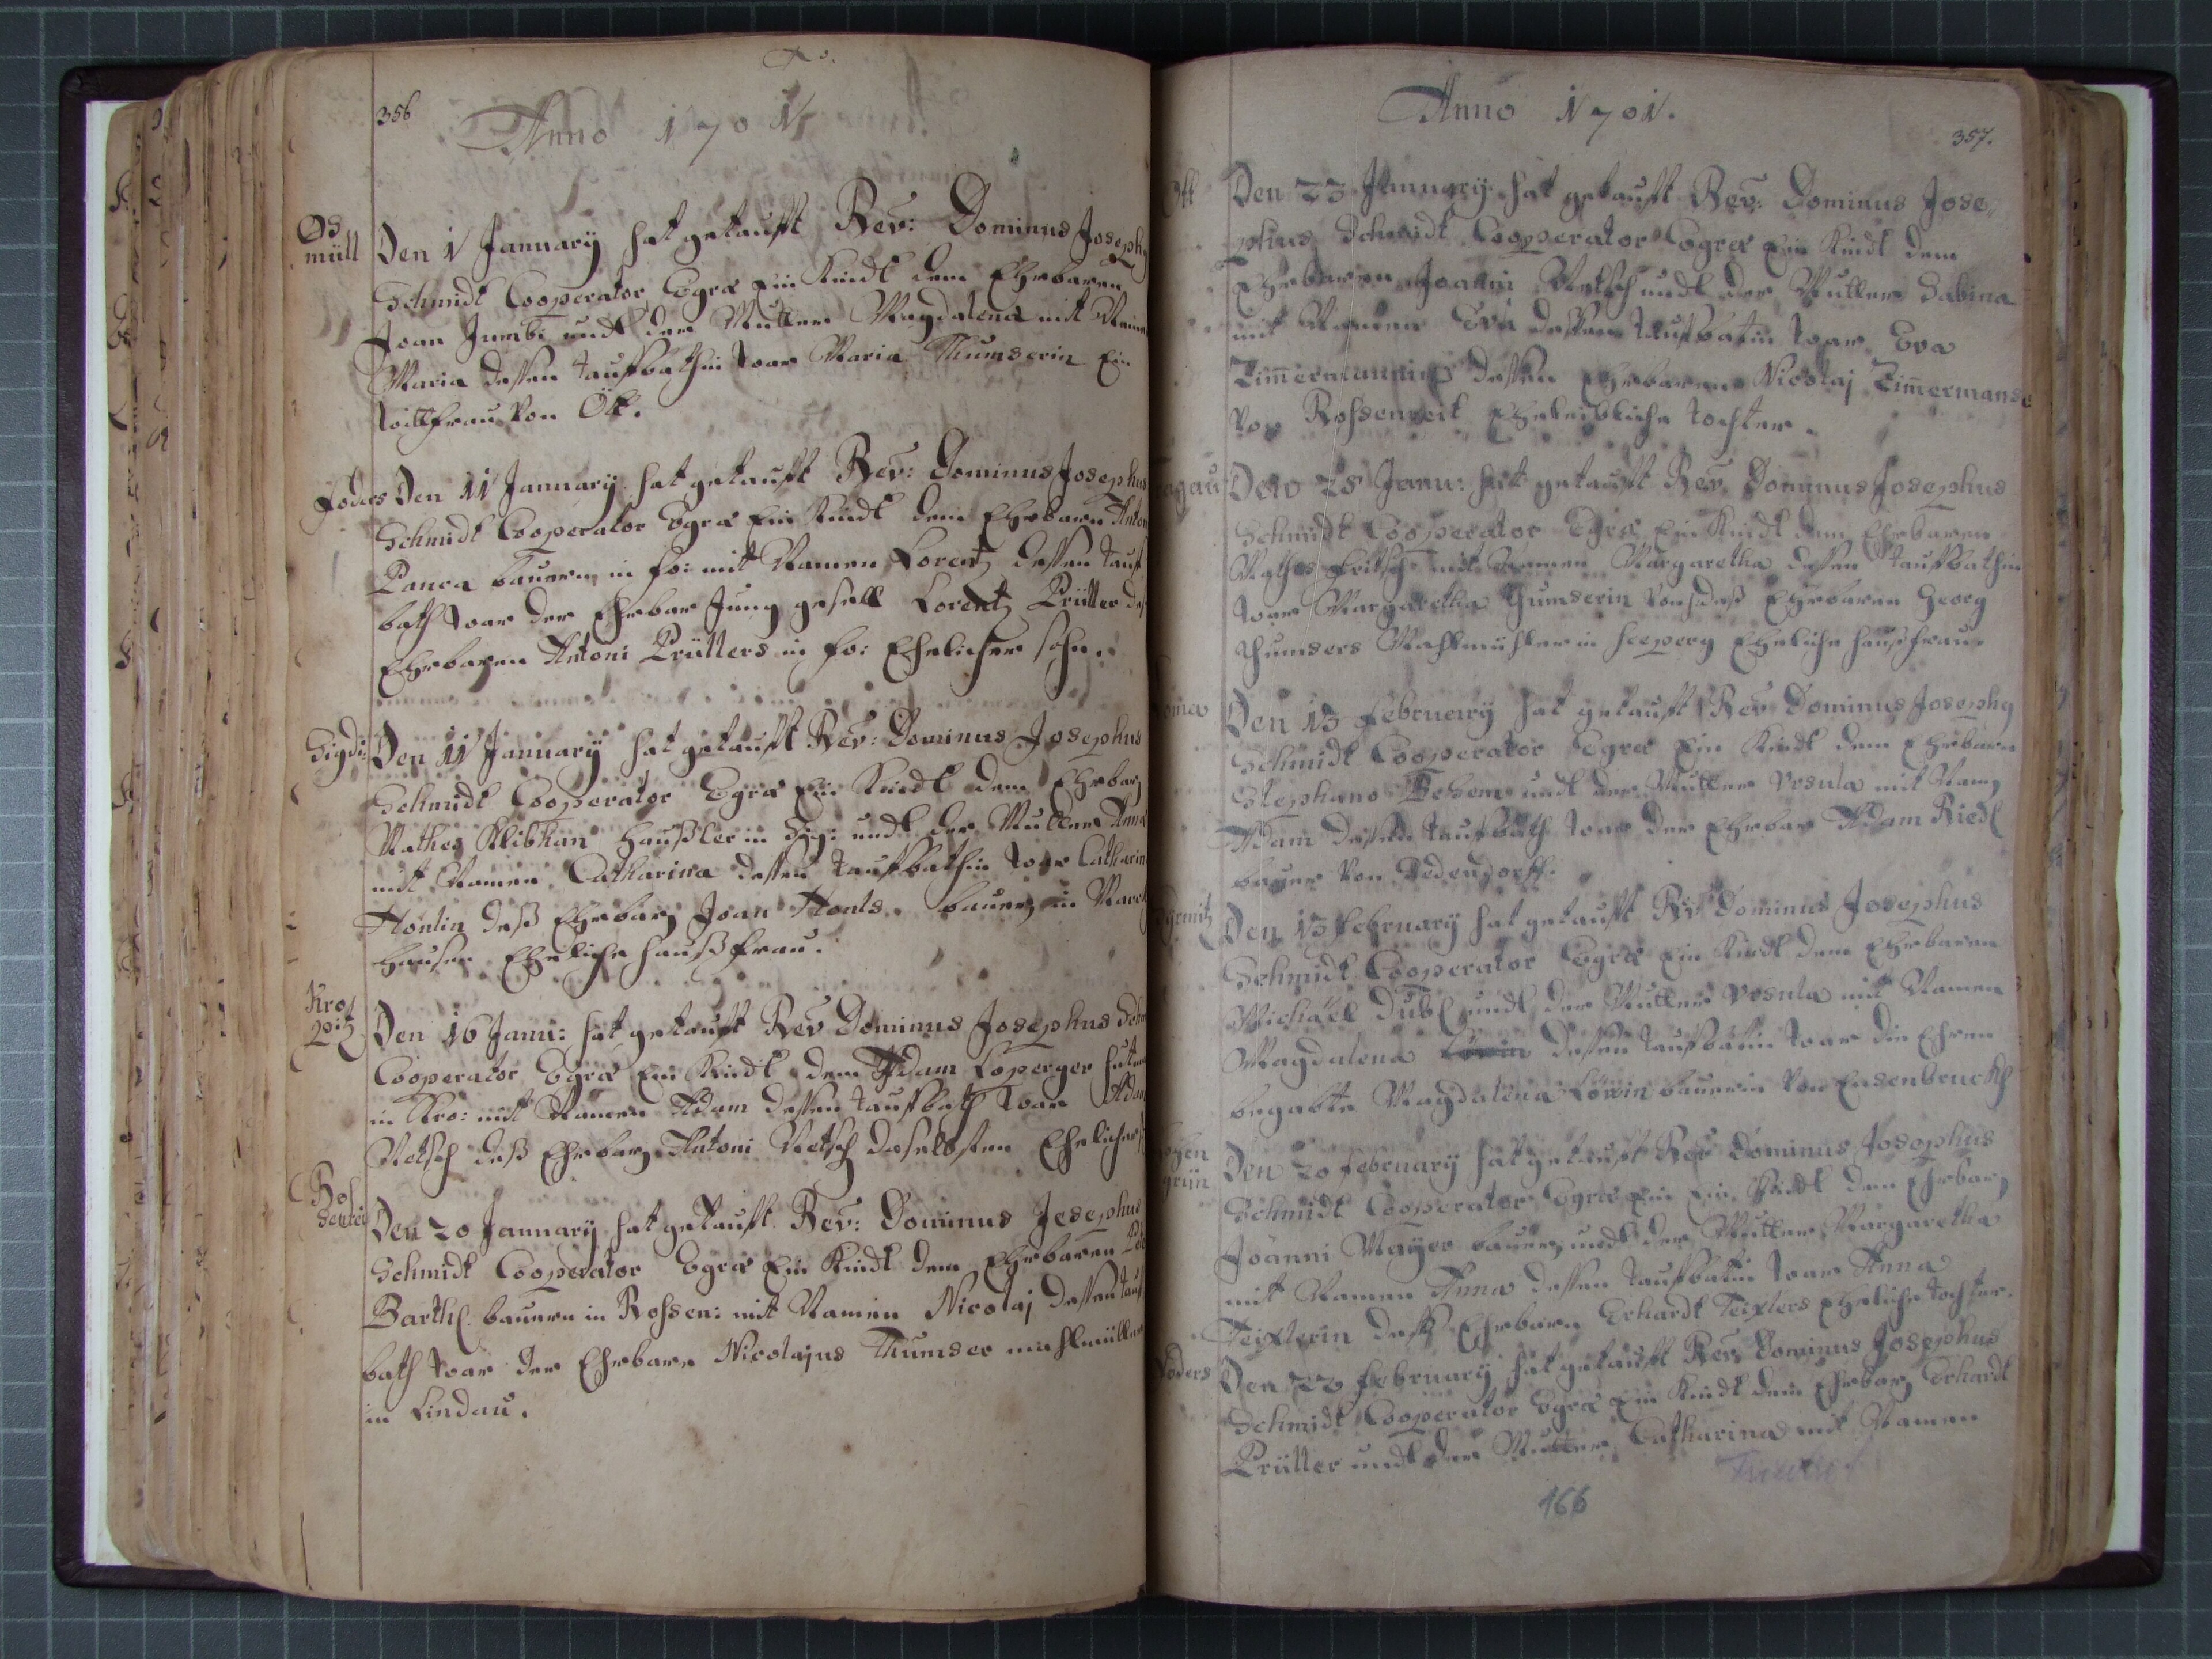 356
Anno 1701
Os
müll
Den 1 January hat getaufft Rev: Dominus Josephg
Schmidt Cooperator Egræ Ein Kindt dem Ehrbaren
Joan Jumbi undt der Mutter Magdalena mit Namen
Maria dessen tauffbathin war Maria Thumserin Ein
wittfrau von Ött.
Foders Den 11 January hat getaufft Rev: Dominus Josephus
Schmidt Cooperator Egræ Ein Kindt dem Ehrbarn Anton
Panca bauern in fo: mit Namen Lorentz dessen tauf
bath war der Ehrbar Jung gesell Lorentz Prütter deß
Ehrbaren Antoni Prütters in fo: Ehelicher sohn.
Sigdi: Den 11 January hat getaufft Rev: Dominus Josephus
Schmidt Cooperator Egræ Ein Kindt dem Ehrbarn
Mathes Klibhan Haußler in Sig: undt der Mutter Anna
mit Namen Catharina dessen tauffbathin war Catharin
Hontin deß Ehrbarn Joan Honts bauern in Marck
hausen Eheliche haußfrau.
Kro
Den 16 Janu: hat getaufft Rev Dominus Josephus Schm
Cooperator Egræ Ein Kindt dem Adam Loperger
in Kro: mit Namen Adam dessen tauffbath war Adam
Netsch deß Ehrbarn Antoni Netsch daselbsten Ehelicher
Ros
Den 20 January hat getaufft Rev: Dominus Josephus
Schmidt Cooperator Egræ Ein Kindt dem Ehrbaren
Barthl bauern in Rossen: mit Namen Nicolaj dessen tauf
bath war der Ehrbare Nicolajus Thumser mahlmüller
in Lindau.
Anno 1701.
357.
Ött
Den 23 January hat getaufft Rev: Dominus Jose„
phus Schmidt Cooperator Egræ Ein Kindt dem
Ehrbaren Joanni Netsch undt der Mutter Sabina
mit Namen Eva dessen tauffbatin war Eva
Zimmermannin dessen Ehrbaren Nicolaj Zimmermans
von Rossenreit Eheleibliche tochter.
Den 28 Janu: hatt getaufft Rev Dominus Josephus
Schmidt Cooperator Egræ Ein Kindt dem Ehrbaren
Mathes Fritsch mit Namen Margaretha dessen tauffbathin
war Margaretha Thumserin von deß Ehrbaren Georg
Thumsers Mahlmüllner in Seeperg Eheliche haußfrau.
Den 13 February hat getaufft Rev Dominus Josephg
Schmidt Cooperator Egræ Ein Kindt dem Ehrbarn
Stephano Behem undt der Mutter Vrsula mit Namen
Adam dessen tauffbath war der Ehrbar Adam Riedl
bauer von Dedendorff.
Den 13 February hat getaufft Rev Dominus Josephus
Schmidt Cooperator Egræ Ein Kindt dem Ehrbaren
Michäel Dubl undt der Mutter Vrsula mit Namen
Magdalena dessen tauffbatin war die Ehren
begabte Magdalena Löwin bäuerin von Ensenbruckh
grün
Den 20 February hat getaufft Rev Dominus Josephus
Schmidt Cooperator Egræ Ein Ein Kindt dem Ehrbarn
Joanni Mayer bauern undt der Mutter Margaretha
mit Namen Anna dessen tauffbatin war Anna
Teixlerin deß Ehrbarn Erhardt Teixlers Eheliche tochter.
Foders
Den 23 February hat getaufft Rev Dominus Josephus
Schmidt Cooperator Egræ Ein Kindt dem Ehrbarn Erhardt
Prütter undt der Mutter Catharina mit Namen
166